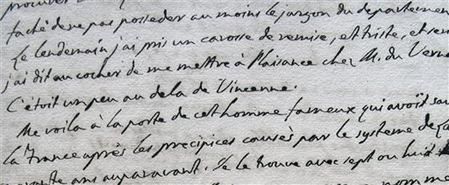 faché de ne pas posseder au moins le jargon du departement
Le lendemain j'ai pris un carosse de remise, et triste, et
j'ai dit au cocher de me mettre à Plaisance chez M. du Verne
C'étoit un peu au dela de Vincenne.
Me voila à la porte de cet homme fameux qui avoit
la France après les precipices causés par le systeme de
ans auparavant. Je le trouve avec sept ou huit